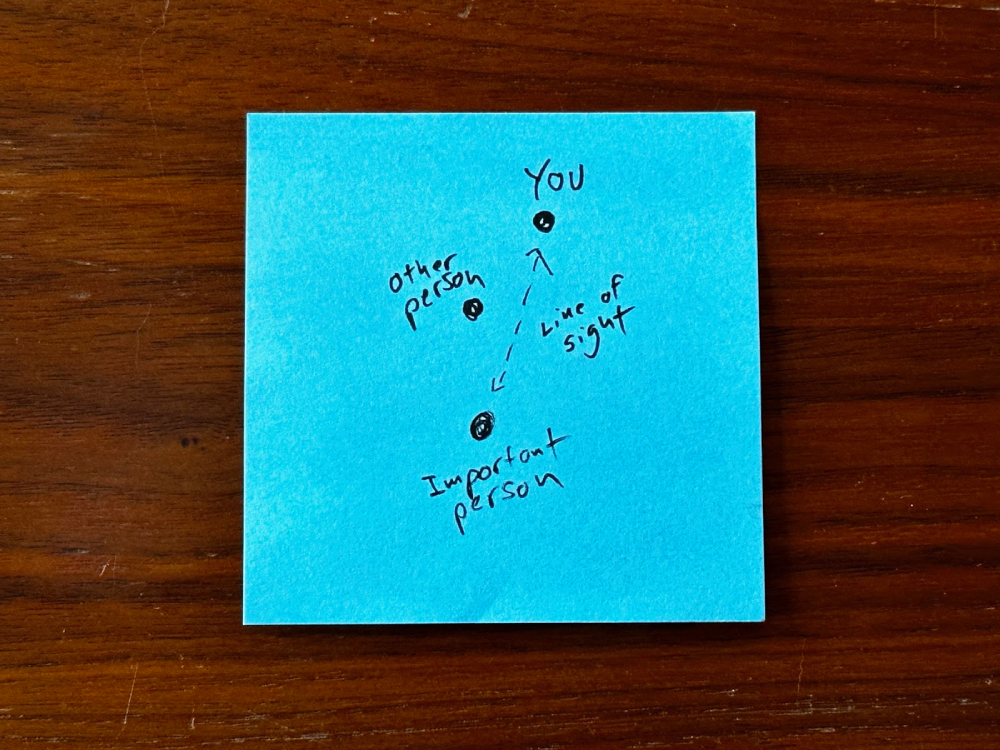 You
other
person
Line of
sight
Important
person